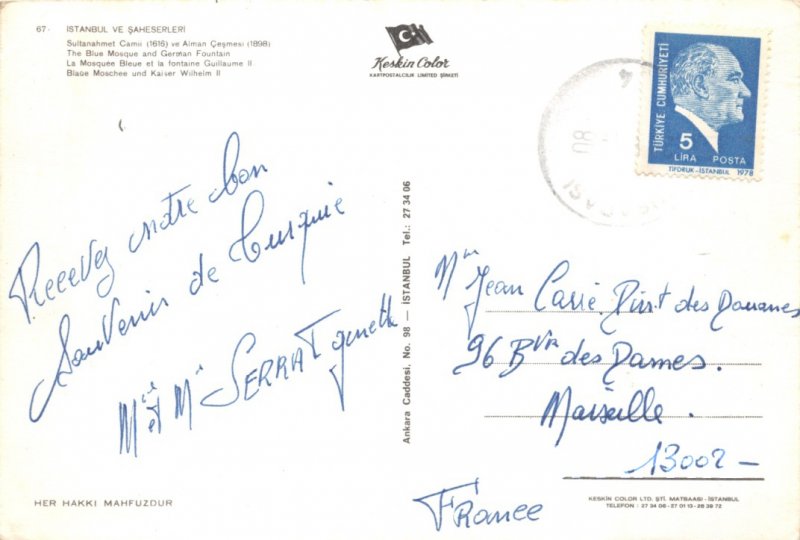 67- İSTANBUL VE ŞAHESERLERİ
Sultanahmet Camii (1616) ve Alman Çeşmesi (1898)
The Blue Mosque and German Fountain
La Mosquée Bleue et la fontaine Guillaume II
Blaue Moschee und Kaiser Wilhelm II
Keskin Color
KARTPOSTALCILIK LIMITED ŞİRKETİ
TÜRKİYE CUMHURİYETİ
5
LİRA POSTA
TİFDRUK-İSTANBUL 1978
Recevez notre bon
Souvenir de Turquie
et SERRA
Ankara Caddesi. No. 98 — İSTANBUL Tel.: 27 34 06
Jean des Douanes
96 des Dames.
Marseille.
13002 -
France
HER HAKKI MAHFUZDUR
KESKIN COLOR LTD. ŞTİ. MATBAASI - İSTANBUL
TELEFON : 27 34 06 - 27 01 13 - 28 39 72